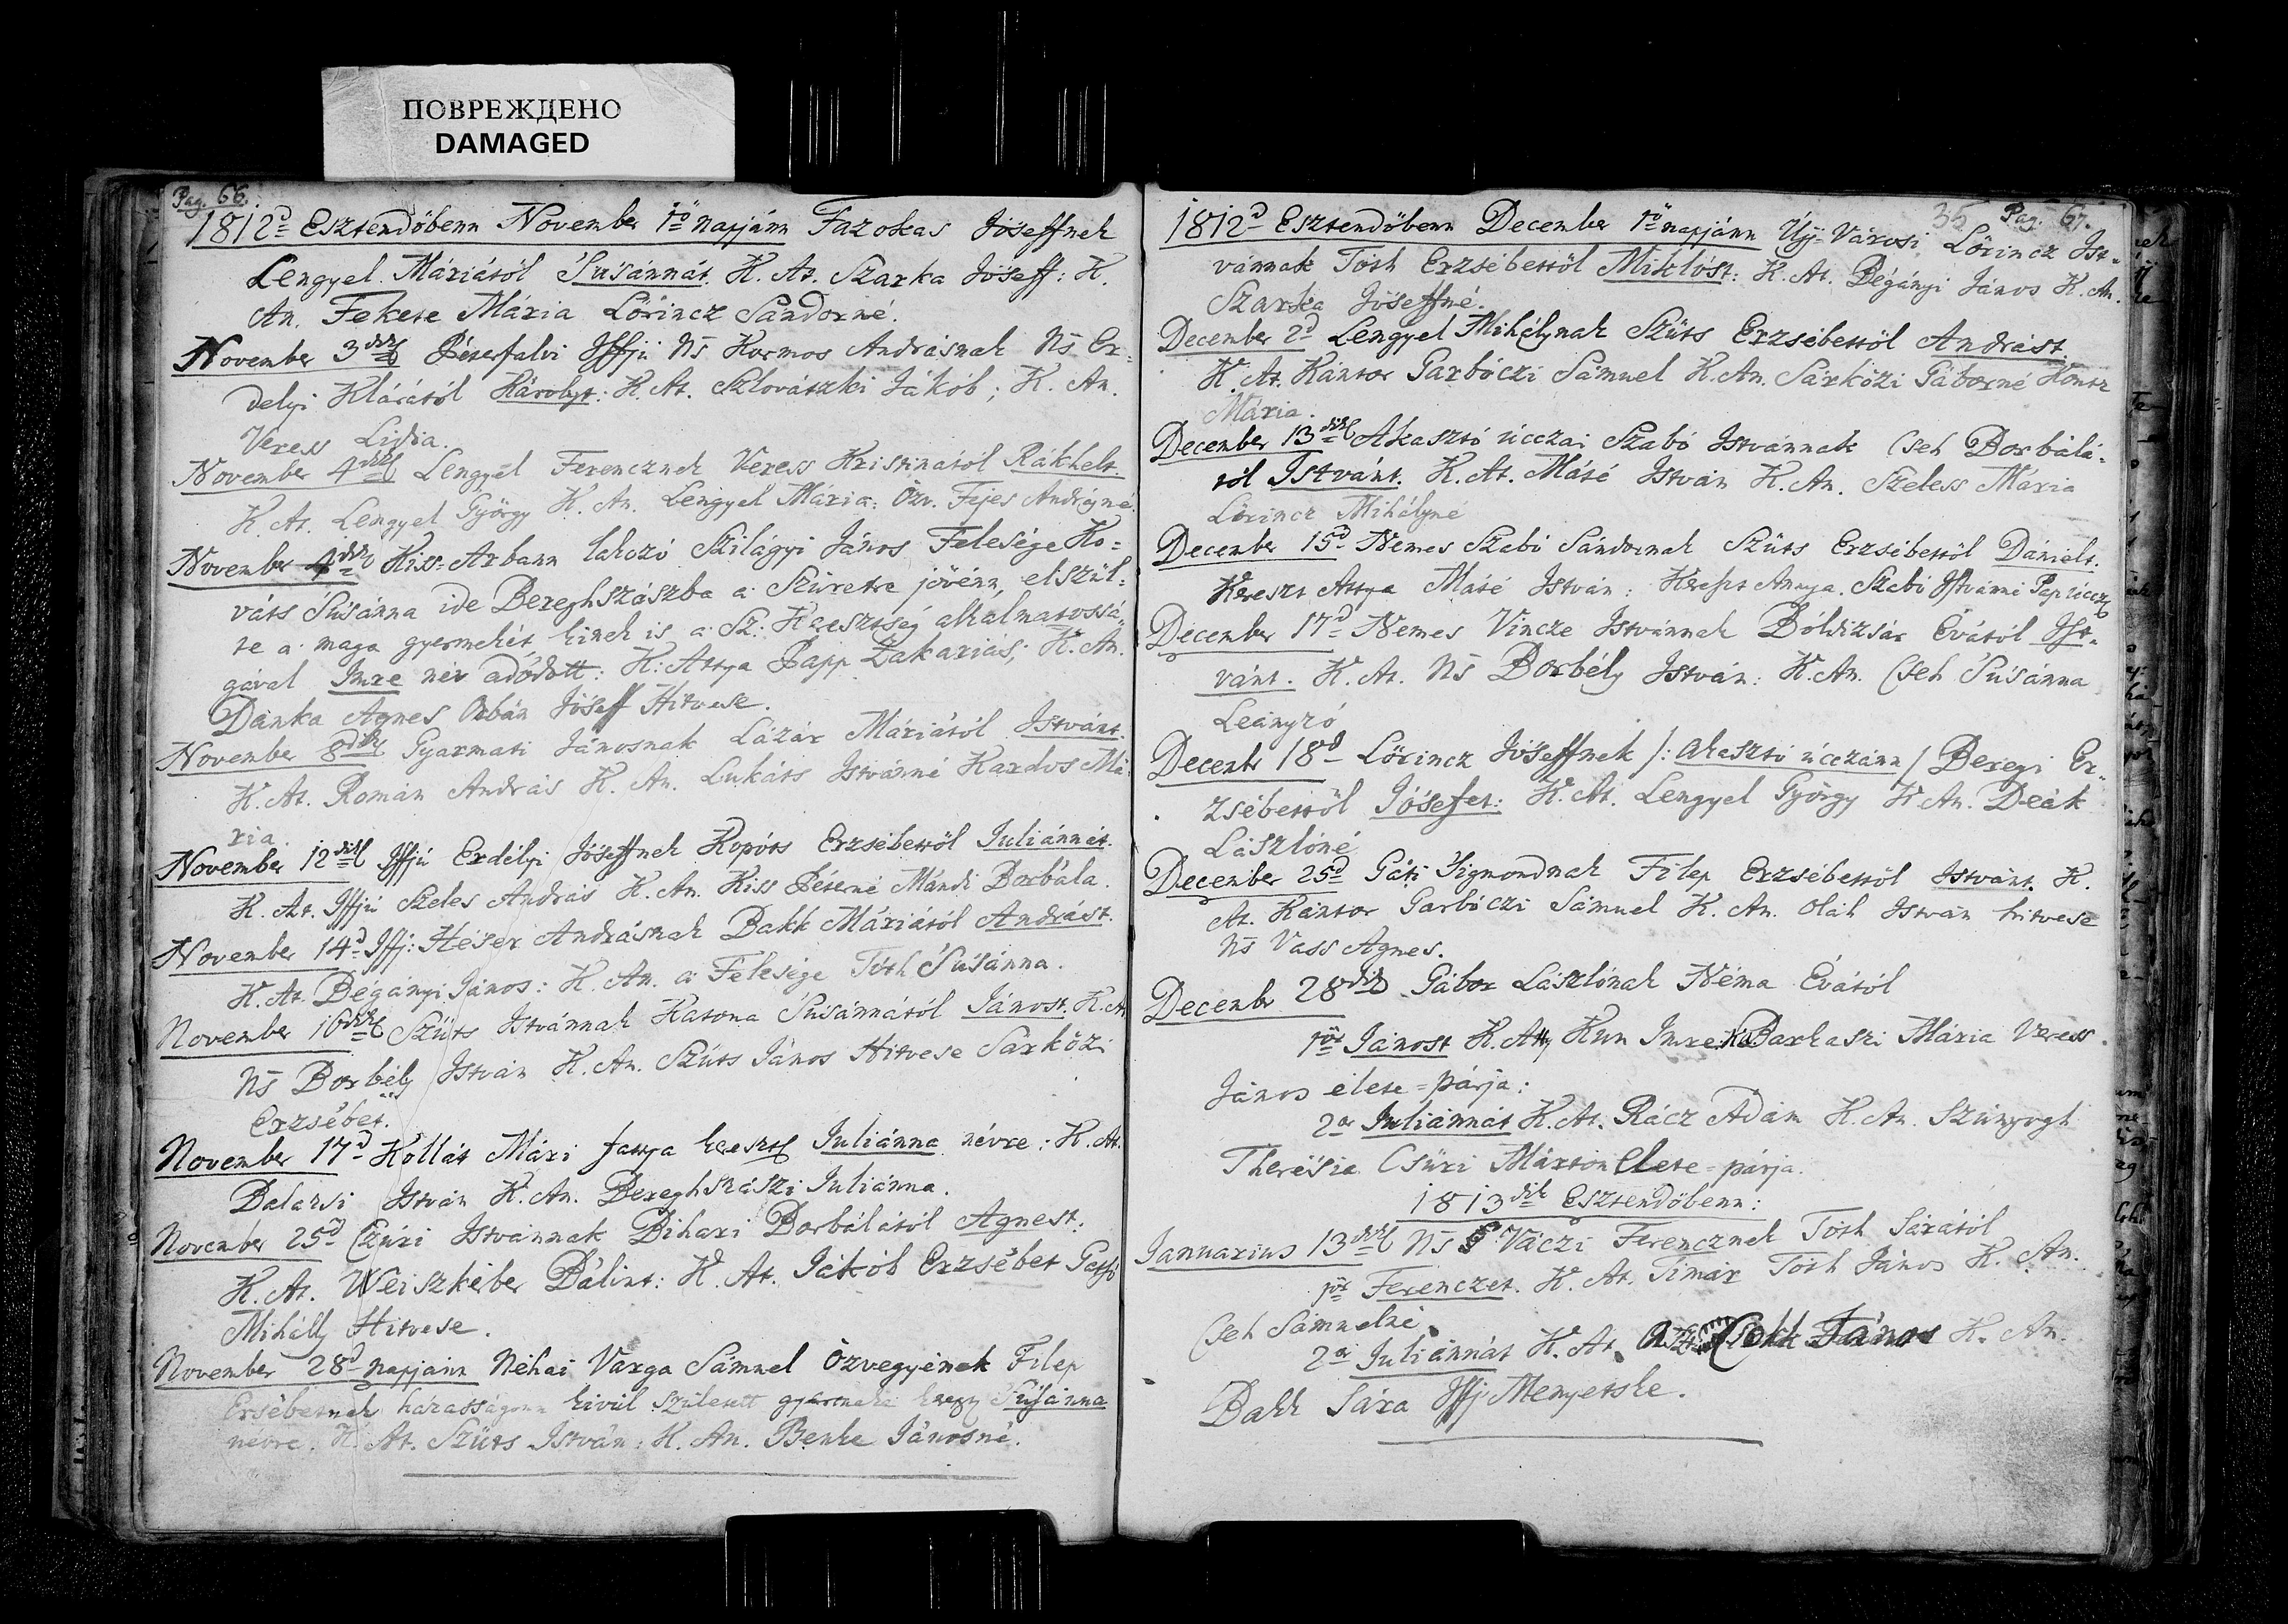 ПОВРЕЖДЕНО
DAMAGED
Pag. 66.
1812d Esztendőbenn November 1ő napjánn Fazokas Jóseffnek
Lengyel Máriától Súsánnát. K. At. Szarka Jóseff: K.
An. Fekete Mária Lőrincz Sándorné.
November 3dik Péterfalvi Iffjú Ns Kormos Andrásnak Ns Er-
delyi Klárától Károlyt: K. At. Szlovászki Jákób; K. An.
Veress Lidia.
November 4dik Lengyel Ferencznek Veress Kristinától Rákhelt.
K. At. Lengyel György K. An. Lengyel Mária: Özv. Fejes Andrásné.
November 4dik Kiss-Arbann lakozó Szilágyi János Felesége Ko-
váts Súsánna ide Bereghszászba a Szüretre jövénn, elszül-
te a maga gyermekét, kinek is a Sz. Keresztség alkalmatossá-
gával Imre név adódott: K. Attya Papp Zakariás; K. An.
Danka Agnes Orbán Jóseff Hitvese.
November 8dik Gyarmati Jánosnak Lázár Máriától Istvánt.
K. At. Román András K. An. Lukáts Istvánné Kardos Má-
ria.
November 12dik Iffjú Erdélyi Jóseffnek Kopóts Erzsébettől Juliánnát.
K. At. Iffjú Szeles András K. An. Kiss Péterné Mándi Borbála.
November 14d Iffj: Héser Andrásnak Bakk Máriától Andrást.
K. At. Bégányi János: K. An. a Felesége Tóth Súsánna.
November 16dik Szüts Istvánnak Katona Súsánnától Jánost. K. At.
Ns Borbély István K. An. Szüts János Hitvese Sarközi
Erzsébet.
November 17d Kollát Mári fattya kereszt Juliánna névre: K. At.
Balazsi István K. An. Bereghszászi Juliánna.
November 25d Czúri Istvánnak Bihari Borbálától Agnest.
K. At. Weiszkéber Bálint: K. At. Jakób Erzsébet
Mihálly Hitvese.
November 28d napjánn Néhai Varga Sámuel Özvegyének Filep
Ersébetnek házasságonn kivül született gyermeke Súsánna
névre. K. At. Szüts István: K. An. Benke Jánosné.
35 Pag. 67.
1812d Esztendőbenn December 1ő napjánn Új-Városi Lőrincz Ist-
vánnak Tóth Erzsébettől Miklóst: K. At. Bégányi János K. An.
Szarka Jóseffné.
December 2d Lengyel Mihálynak Szüts Erzsébettől Andrást.
K. At. Kántor Garbóczi Sámuel K. An. Sárközi Gáborné Kontz
Mária.
December 13dik Akasztó úcczai Szabó Istvánnak Cseh Borbálá-
tól Istvánt. K. At. Máté István K. An. Szeless Mária
Lőrincz Mihályné
December 15d Nemes Szabó Sándornak Szüts Erzsébettől Dánielt.
Kereszt Attya Máté István: Kereszt Annya. Szabó Istvánné Pap úccz
December 17d Nemes Vincze Istvánnak Bóldizsár Évától Ist-
vánt. K. At. Ns Borbély István: K. An. Cseh Súsánna
Leányzó
Decembr 18d Lőrincz Jóseffnek /: Akasztó úcczánn / Beregi Er-
zsébettől Jósefet: K. At. Lengyel György K. An. Deák
Lászlóné
December 25d Gáti Sigmondnak Filep Erzsébettől Istvánt. K.
At. Kántor Garbóczi Sámuel K. An. Oláh István hitvese
Ns Vass Agnes.
December 28dik Gábor Lászlónak Néma Évától
1ör Jánost K. Atty Kun Imre K. A. Barkaszi Mária Veress
János élete-párja:
2or Juliánnát K. At. Rácz Adám K. An. Szúnyogh
Therésia Csűri Márton Élete-párja.
1813dik Esztendőbenn:
Januarius 13dik Ns Váczi Ferencznek Tóth Sárától
1ör Ferenczet. K. At. Timár Tóth János K. An.
Cseh Sámuelné
2or Juliánnát K. At. János K. An.
Bakk Sára Iffj. Menyetske.